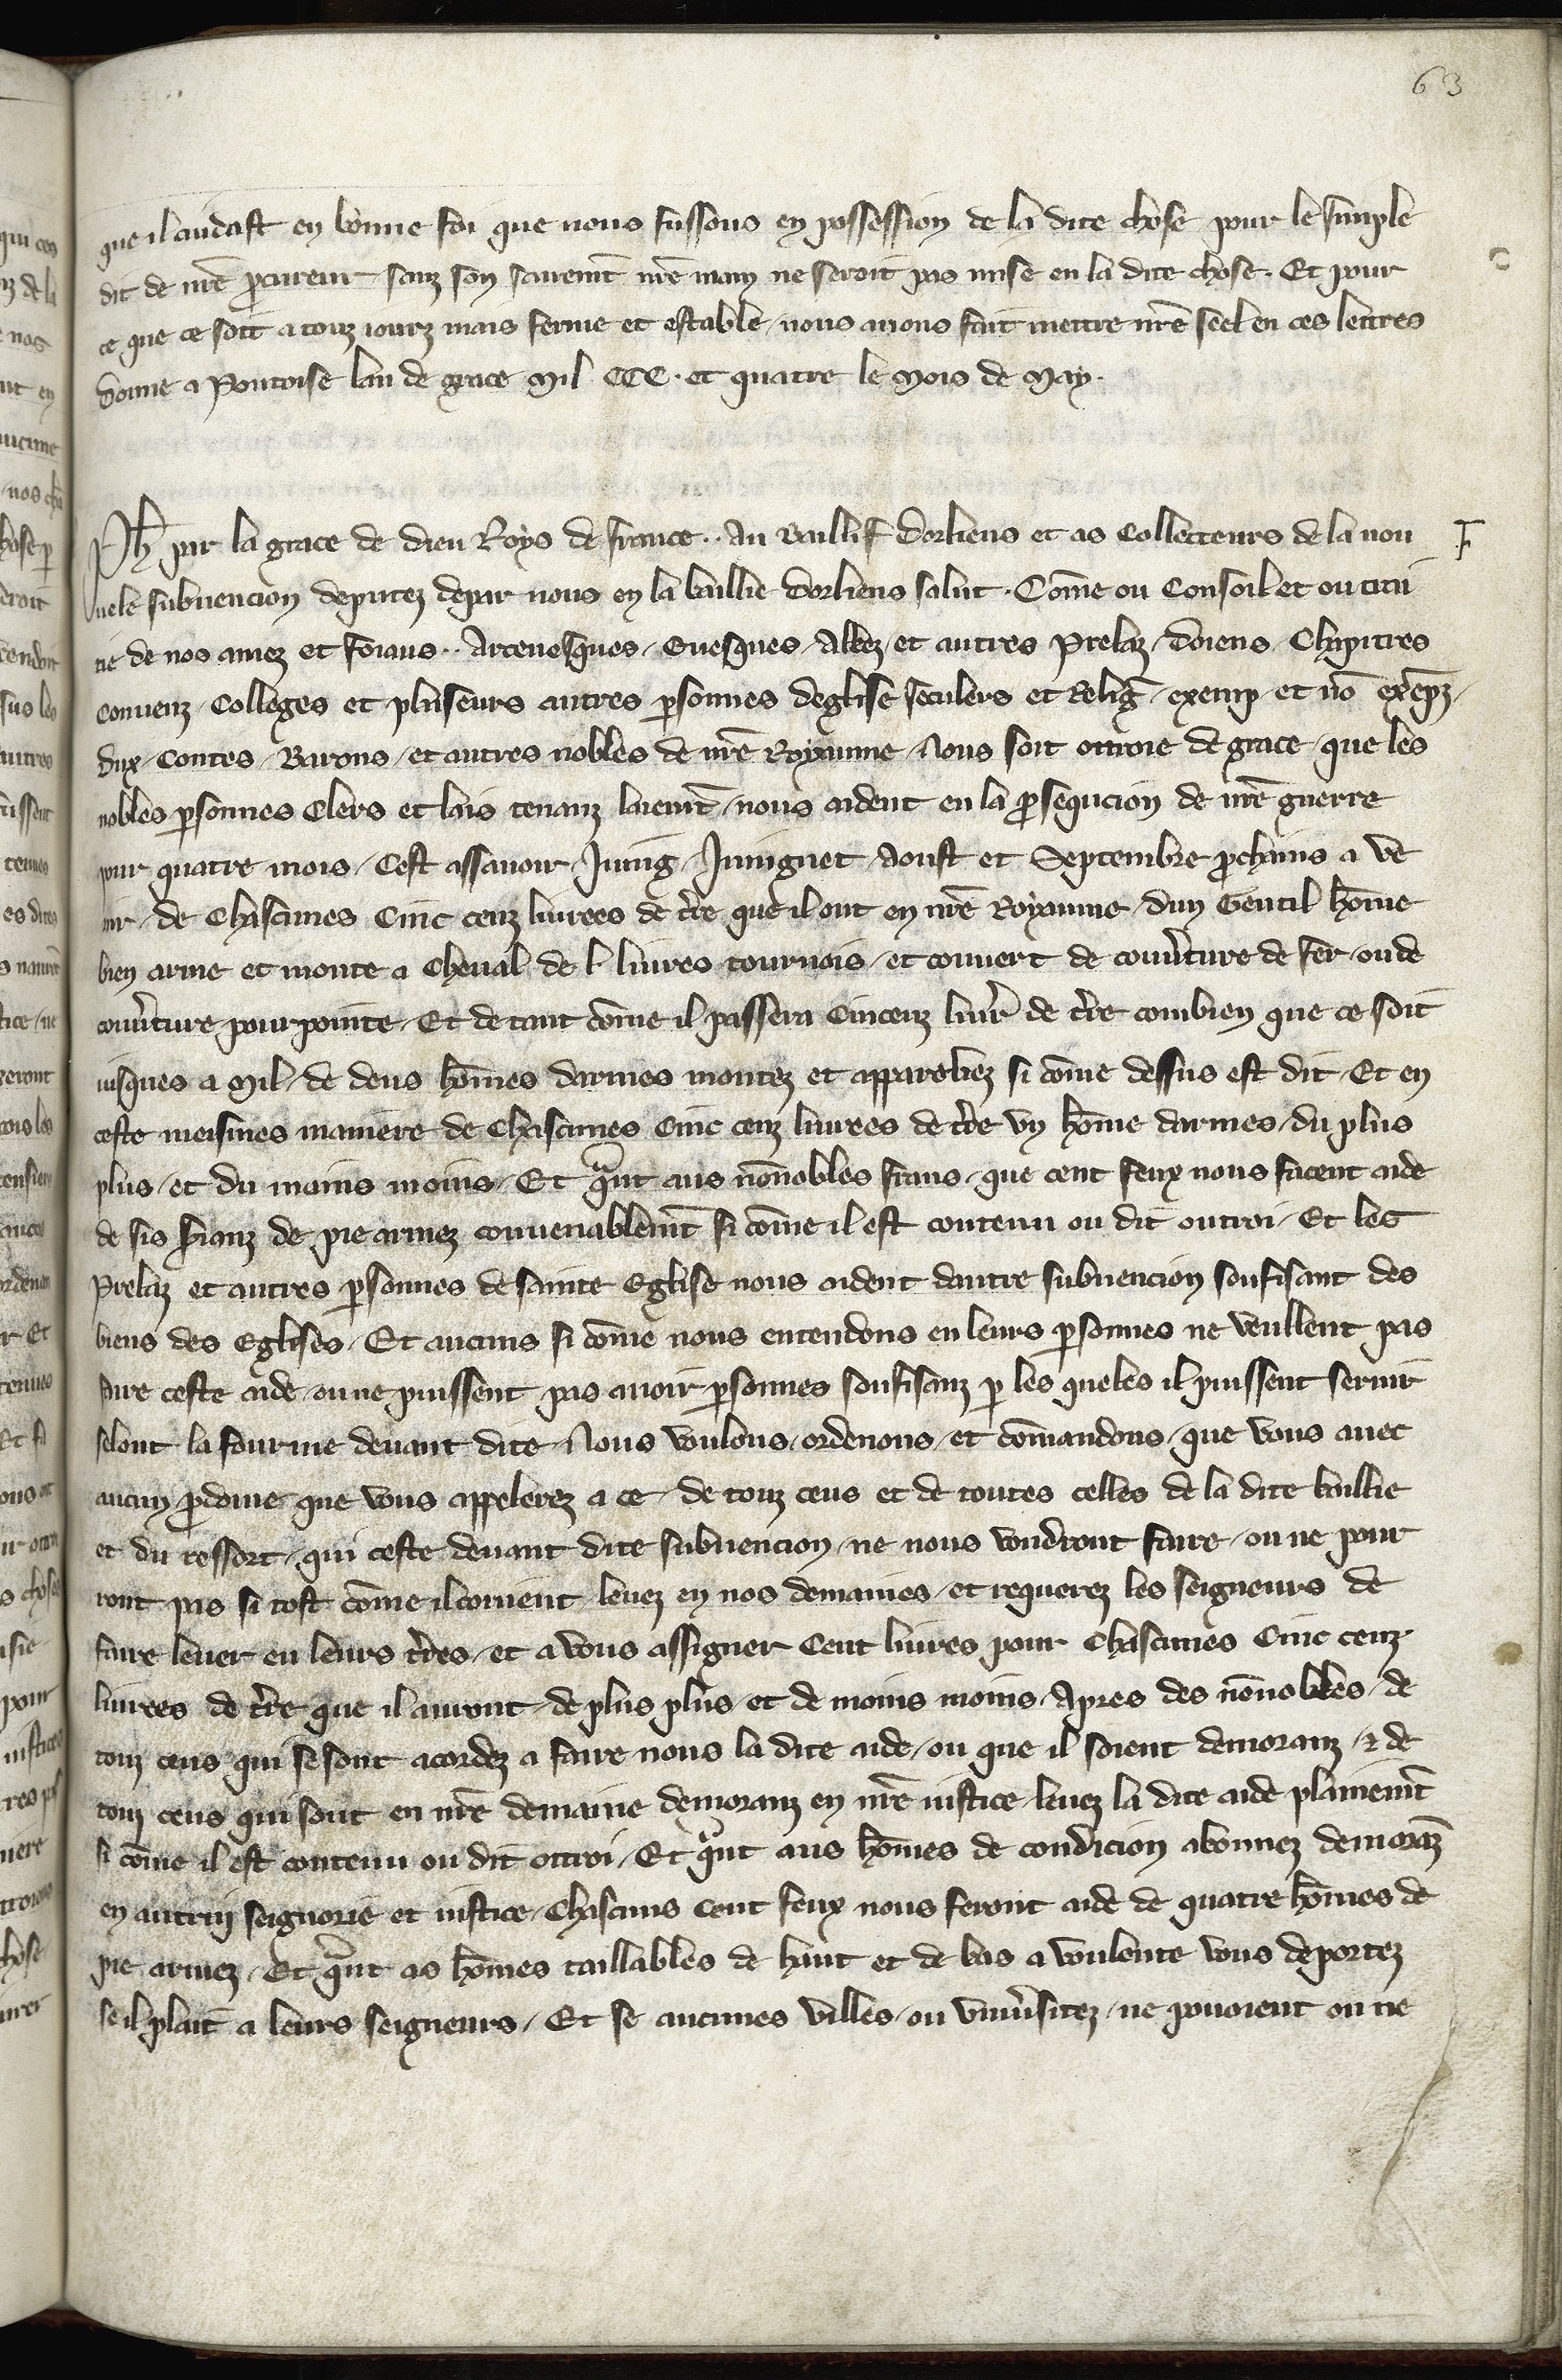 63
que il cuidast en bonne foi que nous fussons en possession de la dite chose pour le simple
dit de nr̄e ꝓcureur / sanz son serement̄ nr̄e main ne seroit pas mise en la dite chose. Et pour
ce que ce soit a touz iourz mais ferme et estable / nous auons fait mettre nr̄e seel en ces lettres
donne a Pontoise lan de grace Mil CCC. et quatre le mois de May.
Ph̄ par la grace de dieu Roys de france .. Au Baillif dorliens et as Collecteurs de la nou
F
uele subuencion deputez de par nous en la baillie dorliens salut. Com̄e ou Conseil et ou trai
tie de nos amez et foiaus .. Arceuesques / Euesques / Abbez / et autres Prelaz / doiens / Chapitres
Conuenz / Colleges et pluseurs autres ꝑsonnes deglise seculers et Reliḡ / exemp / et nō exēpz /
dux / Contes / Barons / et autres nobles de nr̄e Royaume / Nous soit ottroie de grace / que les
nobles ꝑsonnes Clers et lais tenanz laiemt̄ / nous aident en la ꝓsequcion de nr̄e guerre
pour quatre mois / Cest assauoir / Juing / Juingnet Aoust et Septembre ꝓchains a ve
nir / de Chascunes Cinc cenz liurees de tr̄re que il ont en nr̄e Royaume / dun Gentil hōme
bien arme et monte a Cheual de l. liures tournois / et couuert de couūture de fer / ou de
couūture pourpointe / Et de tant com̄e il passera Cincenz liur̄ de tr̄re combien que ce soit
iusques a Mil / de deus hōmes darmes montez et apparelliez si com̄e dessus est dit / Et en
ceste meismes maniere de Chascunes Cinc cenz liurees de tr̄re vn hōme darmes / du plus
plus / et du mains moins / Et qᵃnt aus nōnobles frans / que cent feux nous facent aide
de sis serianz de pie armez conuenablemt̄ si com̄e il est contenu ou dit outroi / Et les
Prelaz et autres ꝑsonnes de sainte Eglise nous aident dautre subuencion soufisant des
biens des Eglises / Et aucuns si com̄e nous entendons en leurs ꝑsonnes ne veullent pas
faire ceste aide / ou ne puissent pas auoir ꝑsonnes soufisanz ꝑ les queles il puissent seruir
selont la fourme deuant dite / Nous voulons / ordenons / et com̄andons / que vous auec
aucun ꝓdome que vous appelerez a ce / de touz ceus et de toutes celles de la dite baillie
et du ressort / qui ceste deuant dite subuencion / ne nous voudront faire / ou ne pour
ront pas si tost com̄e il conuient / leuez en nos demaines / et requerez les seigneurs de
faire leuer en leurs tr̄res / et a vous assigner Cent liures pour Chascunes Cinc cenz
liurees de tr̄re que il auront / de plus plus / et de moins moins / Apres des nōnobles / de
touz ceus qui se sont acordez a faire nous la dite aide / ou que il soient demoranz / ⁊ de
touz ceus qui sont en nr̄e demaine demoranz en nr̄e iustice / leuez la dite aide plainemt̄
si com̄e il est contenu ou dit ottroi / Et qᵃnt aus hōmes de condicion abonnez demorāz
en autrui seignorie et iustice / Chascuns Cent feux nous feront aide de quatre hōmes de
pie armez / Et qᵃnt as hōmes taillables de haut et de bas a voulente vous deportez
se il plait a leurs seigneurs / Et se aucunes villes / ou vniūsitez / ne pouoient ou ne